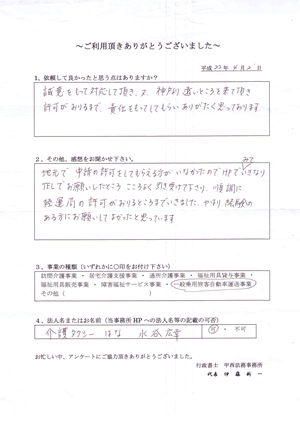 ～ご利用頂きありがとうございました～
平成22年4月2日
1、依頼して良かったと思う点はありますか？
誠意をもって対応して頂き、又、神戸より遠いところを来て頂き
許可がおりるまで、責任をもってしてもらいありがたく思っております
2、その他、感想をお聞かせ下さい。
地元で申請の許可をしてもらえる方がいなかったのでHPでいきなり
TELでお願いしたところこころよく引き受けて下さり、順調に
陸運局の許可がおりるところまでいきました。やはり経験の
ある方にお願いしてよかったと思っています
3、事業の種類（いずれかに○印をお付け下さい）
訪問介護事業・居宅介護支援事業・通所介護事業・福祉用具貸与事業・
福祉用具販売事業・障害福祉サービス事業・一般乗用旅客自動車運送事業
その他（　　　）
4、法人名またはお名前（当事務所HPへの法人名等の記載の可否）
介護タクシー はな 水谷宏幸
可・不可
お忙しい中、アンケートにご協力頂きありがとうございました。
行政書士 甲西法務事務所
代表 伊藤